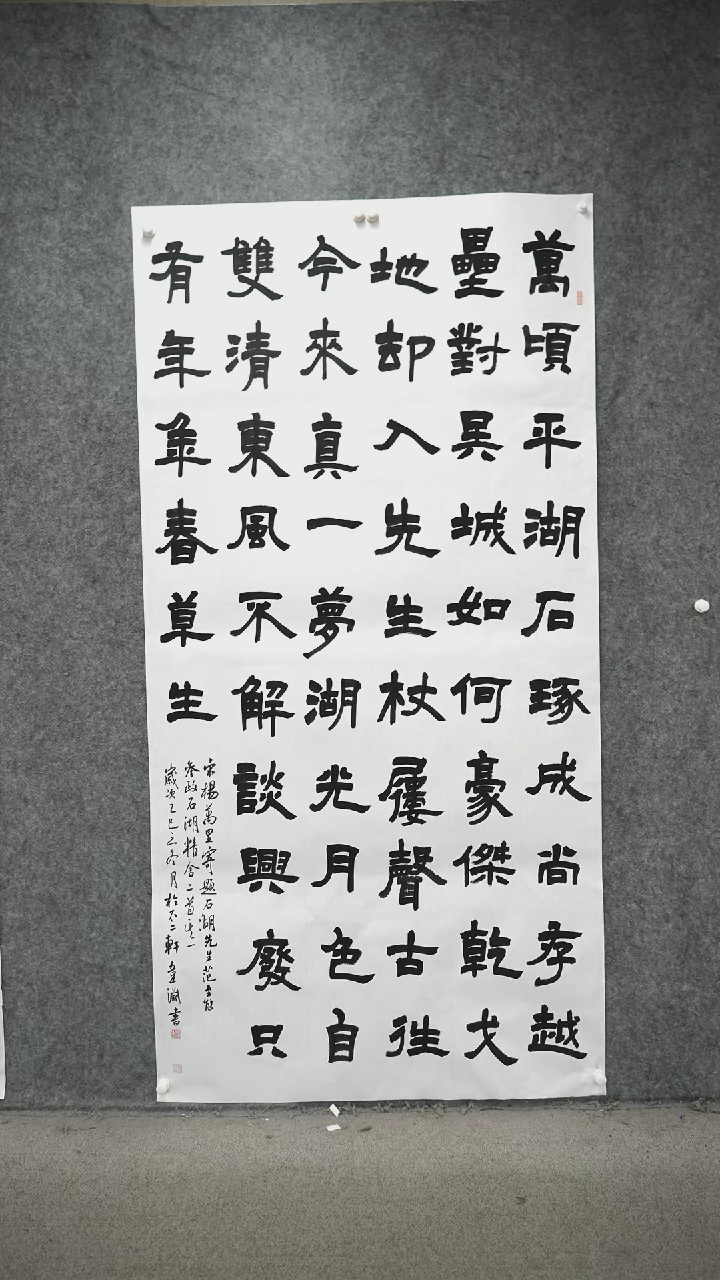 萬頃平湖石琢成尚存越
壘對吴城如何豪傑乾戈
地却入先生杖屨聲古往
今來真一夢湖光月色自
雙清東風不解談興廢只
有年年春草生
宋楊萬里寄題石湖先生范至能
参政石湖精舍二首之一
歲次乙巳之冬月於不二軒書